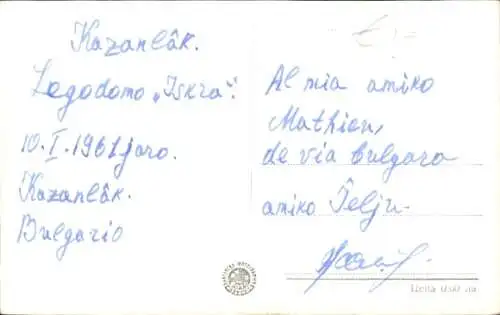 Kazanlâk.
Legodomo „Iskra".
10.I.1961 jaro.
Kazanlâk.
Bulgario
Al mia amiko
Mathieu,
de via bulgara
amiko Ĵelju.
Цена 0·60 лв